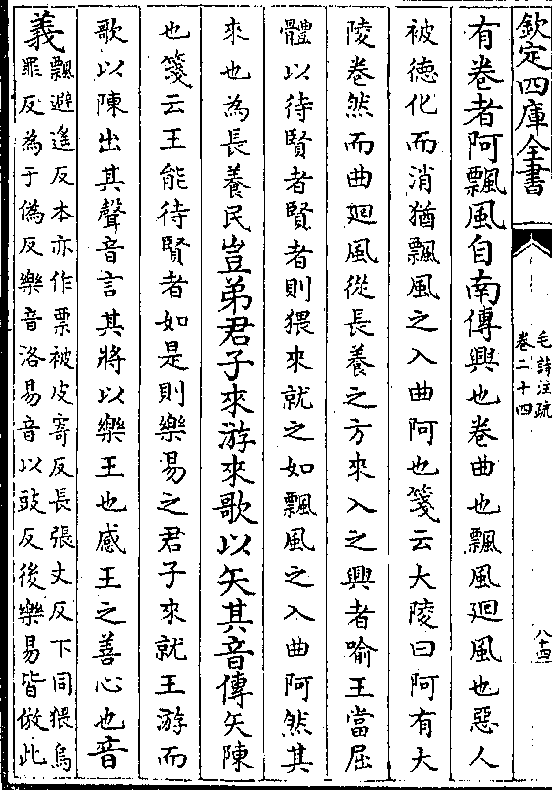 欽定四庫全書
毛詩注疏
卷二十四
八十四
有卷者阿飄風自南傳興也卷曲也飄風廻風也惡人
被德化而消猶飄風之入曲阿也箋云大陵曰阿有大
陵卷然而曲廻風從長養之方來入之興者喻王當屈
體以待賢者賢者則猥來就之如飄風之入曲阿然其
來也為長養民豈弟君子來游來歌以矢其音傳矢陳
也箋云王能待賢者如是則樂易之君子來就王游而
歌以陳出其聲音言其將以樂王也感王之善心也音
義
飄避遙反本亦作票被皮寄反長張丈反下同猥烏
罪反為于偽反樂音洛易音以豉反後樂易皆倣此